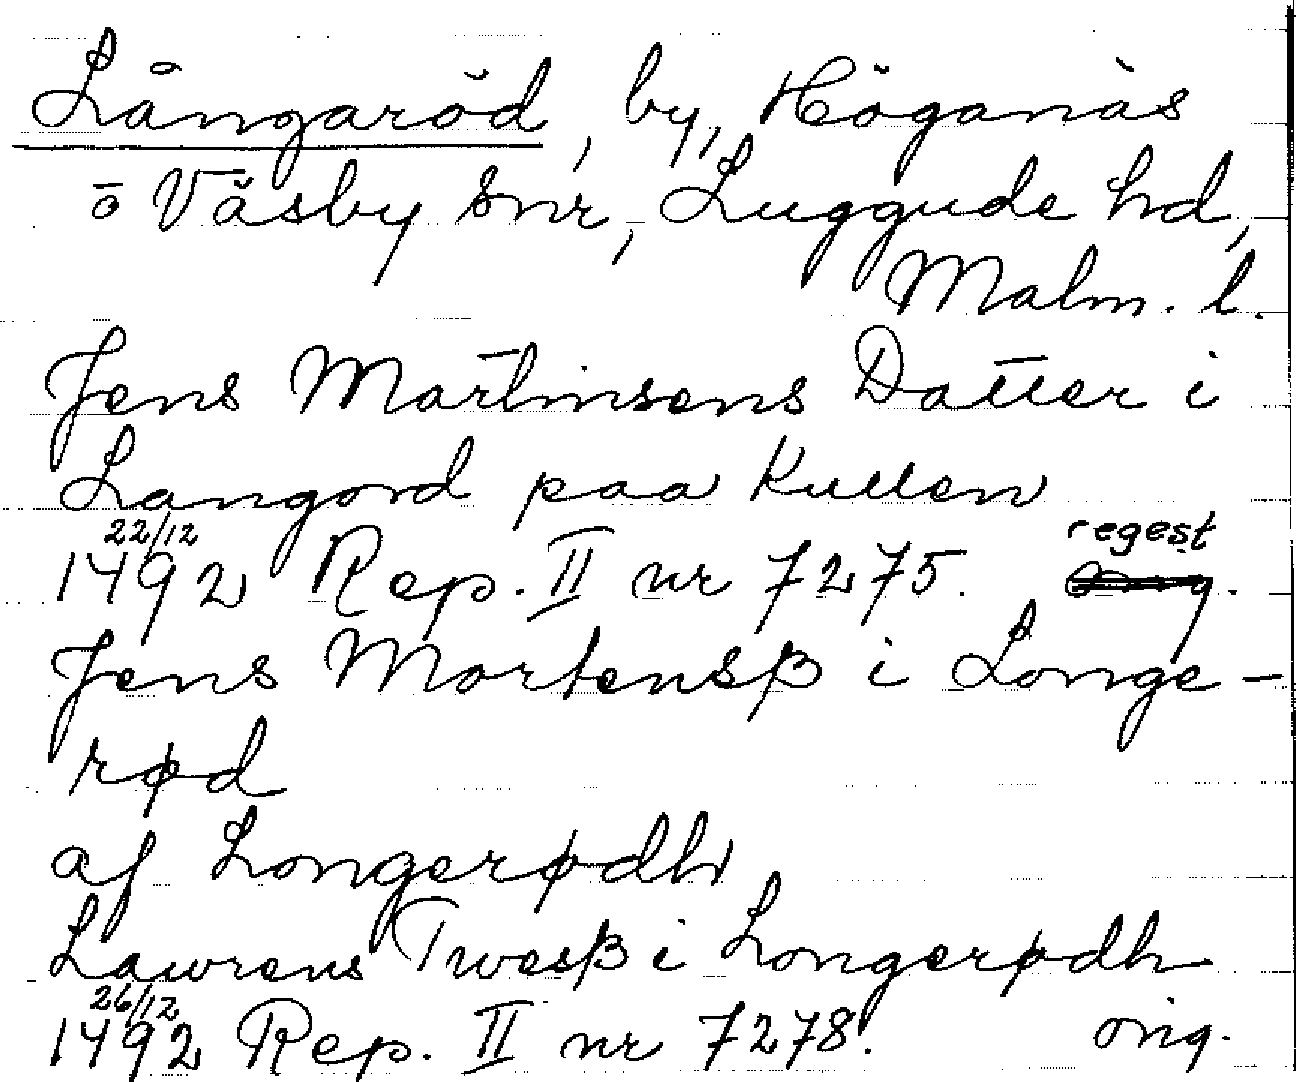 Långaröd, by, Höganäs
o Väsby snr, Luggude hd,
Malm. l.
Jens Martinsens Datter i
Langord paa Kullen
22/12
1492 Rep. II nr 7275. regest
Jens Mortensß i Longe-
rød
af Longerødh
Lawrens Twesß i Longerødh
26/12
1492 Rep. II nr 7278. orig.